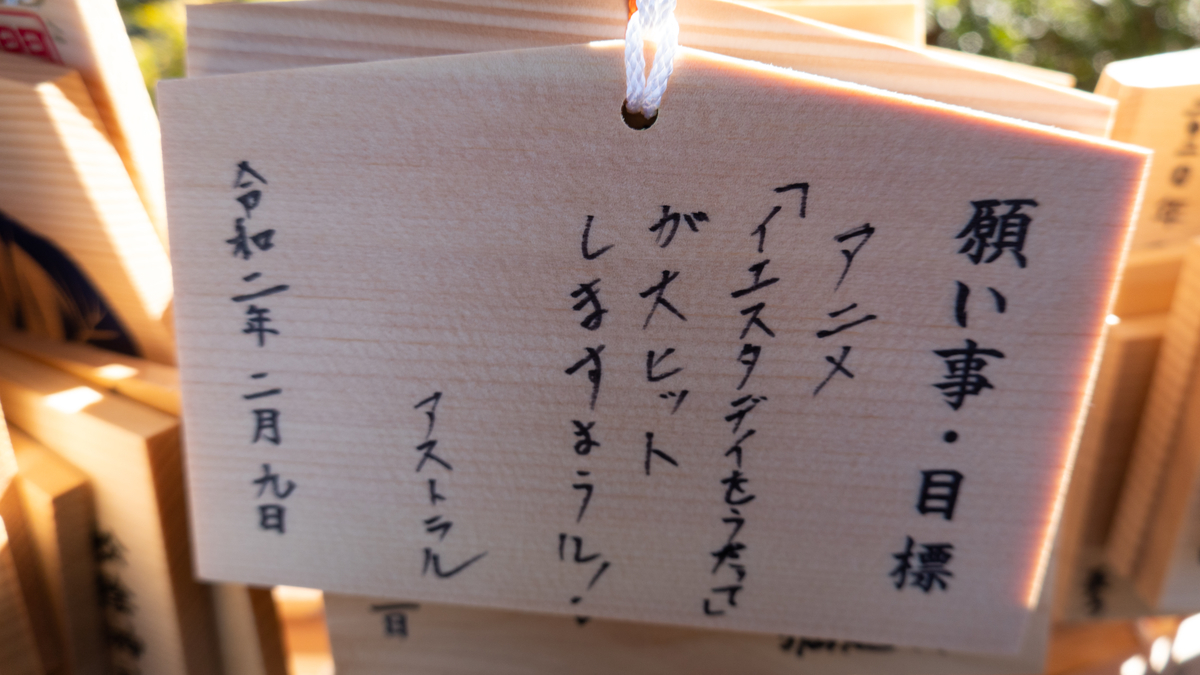 願い事・目標
アニメ
「イエスタデイをうたって」
が大ヒット
しますように!
アストラル
令和二年 二月 九日